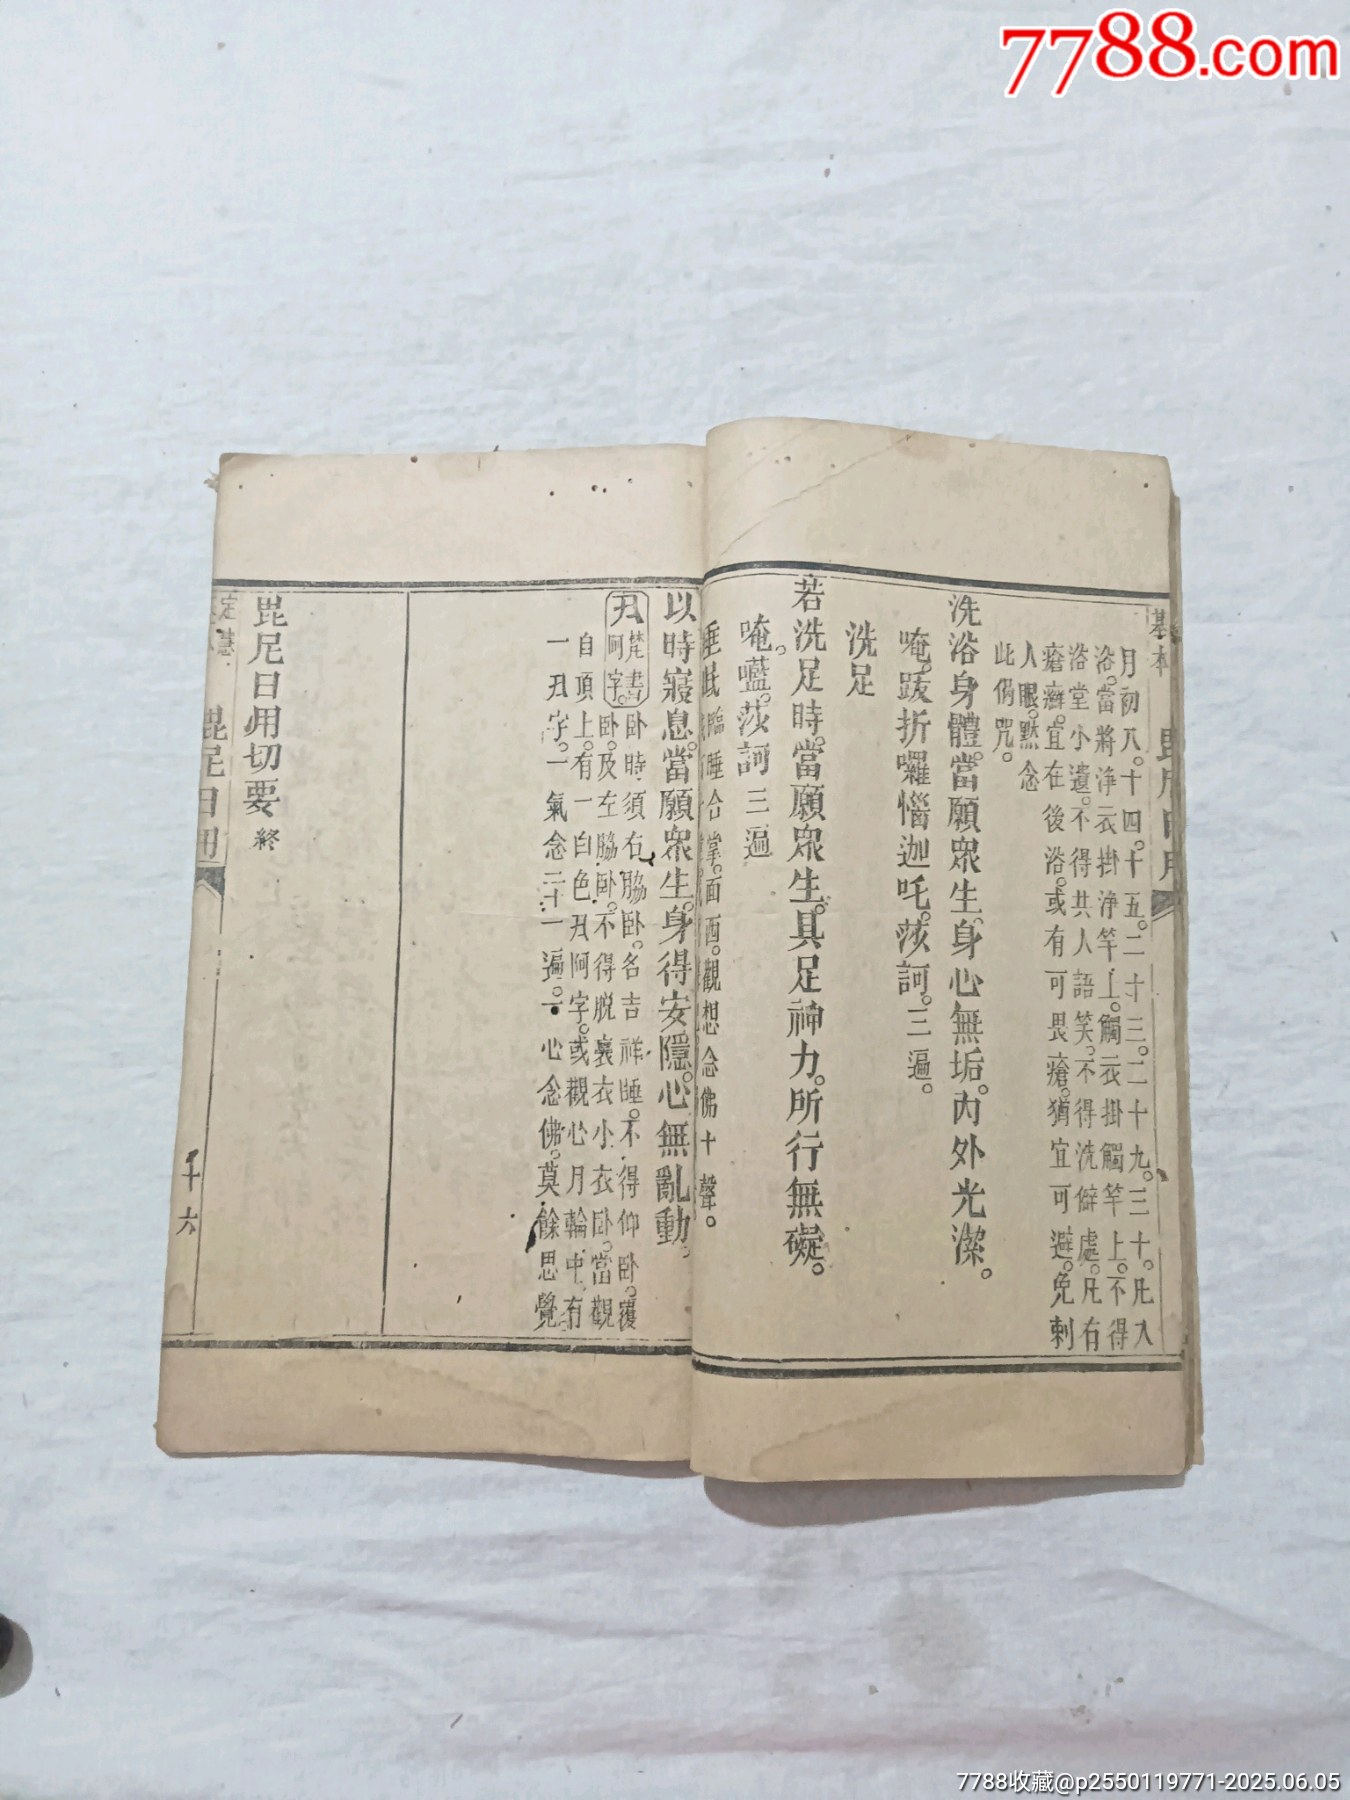 7788.com
基本
毘尼日用
月初八。十四。十五。二十三。二十九。三十。凡入
浴。當將淨衣掛淨竿上。觸衣掛觸竿上。不得
浴堂小遺。不得共人語笑。不得洗僻處。凡有
瘡癬。宜在後浴。或有可畏瘡。猶宜可避。免刺
人眼。默念
此偈咒。
洗浴身體。當願衆生。身心無垢。內外光潔。
唵。跋折囉惱迦吒。莎訶。三遍。
洗足
若洗足時。當願衆生。具足神力。所行無礙。
唵。嚂。莎訶 三遍
垂此臨睡合掌。面西。觀想念佛十聲。
以時寢息。當願衆生。身得安隱。心無亂動。
丑梵書阿字。
臥時須右脇臥。名吉祥睡。不得仰臥。覆
臥。及左脇臥。不得脫裏衣小衣臥。當觀
自頂上。有一白色丑阿字。或觀心月輪中。有
一丑字。一氣念二十一遍。一心念佛。莫餘思覺
毘尼日用切要 終
定慧
毘尼日用
十六
7788收藏@p2550119771-2025.06.05